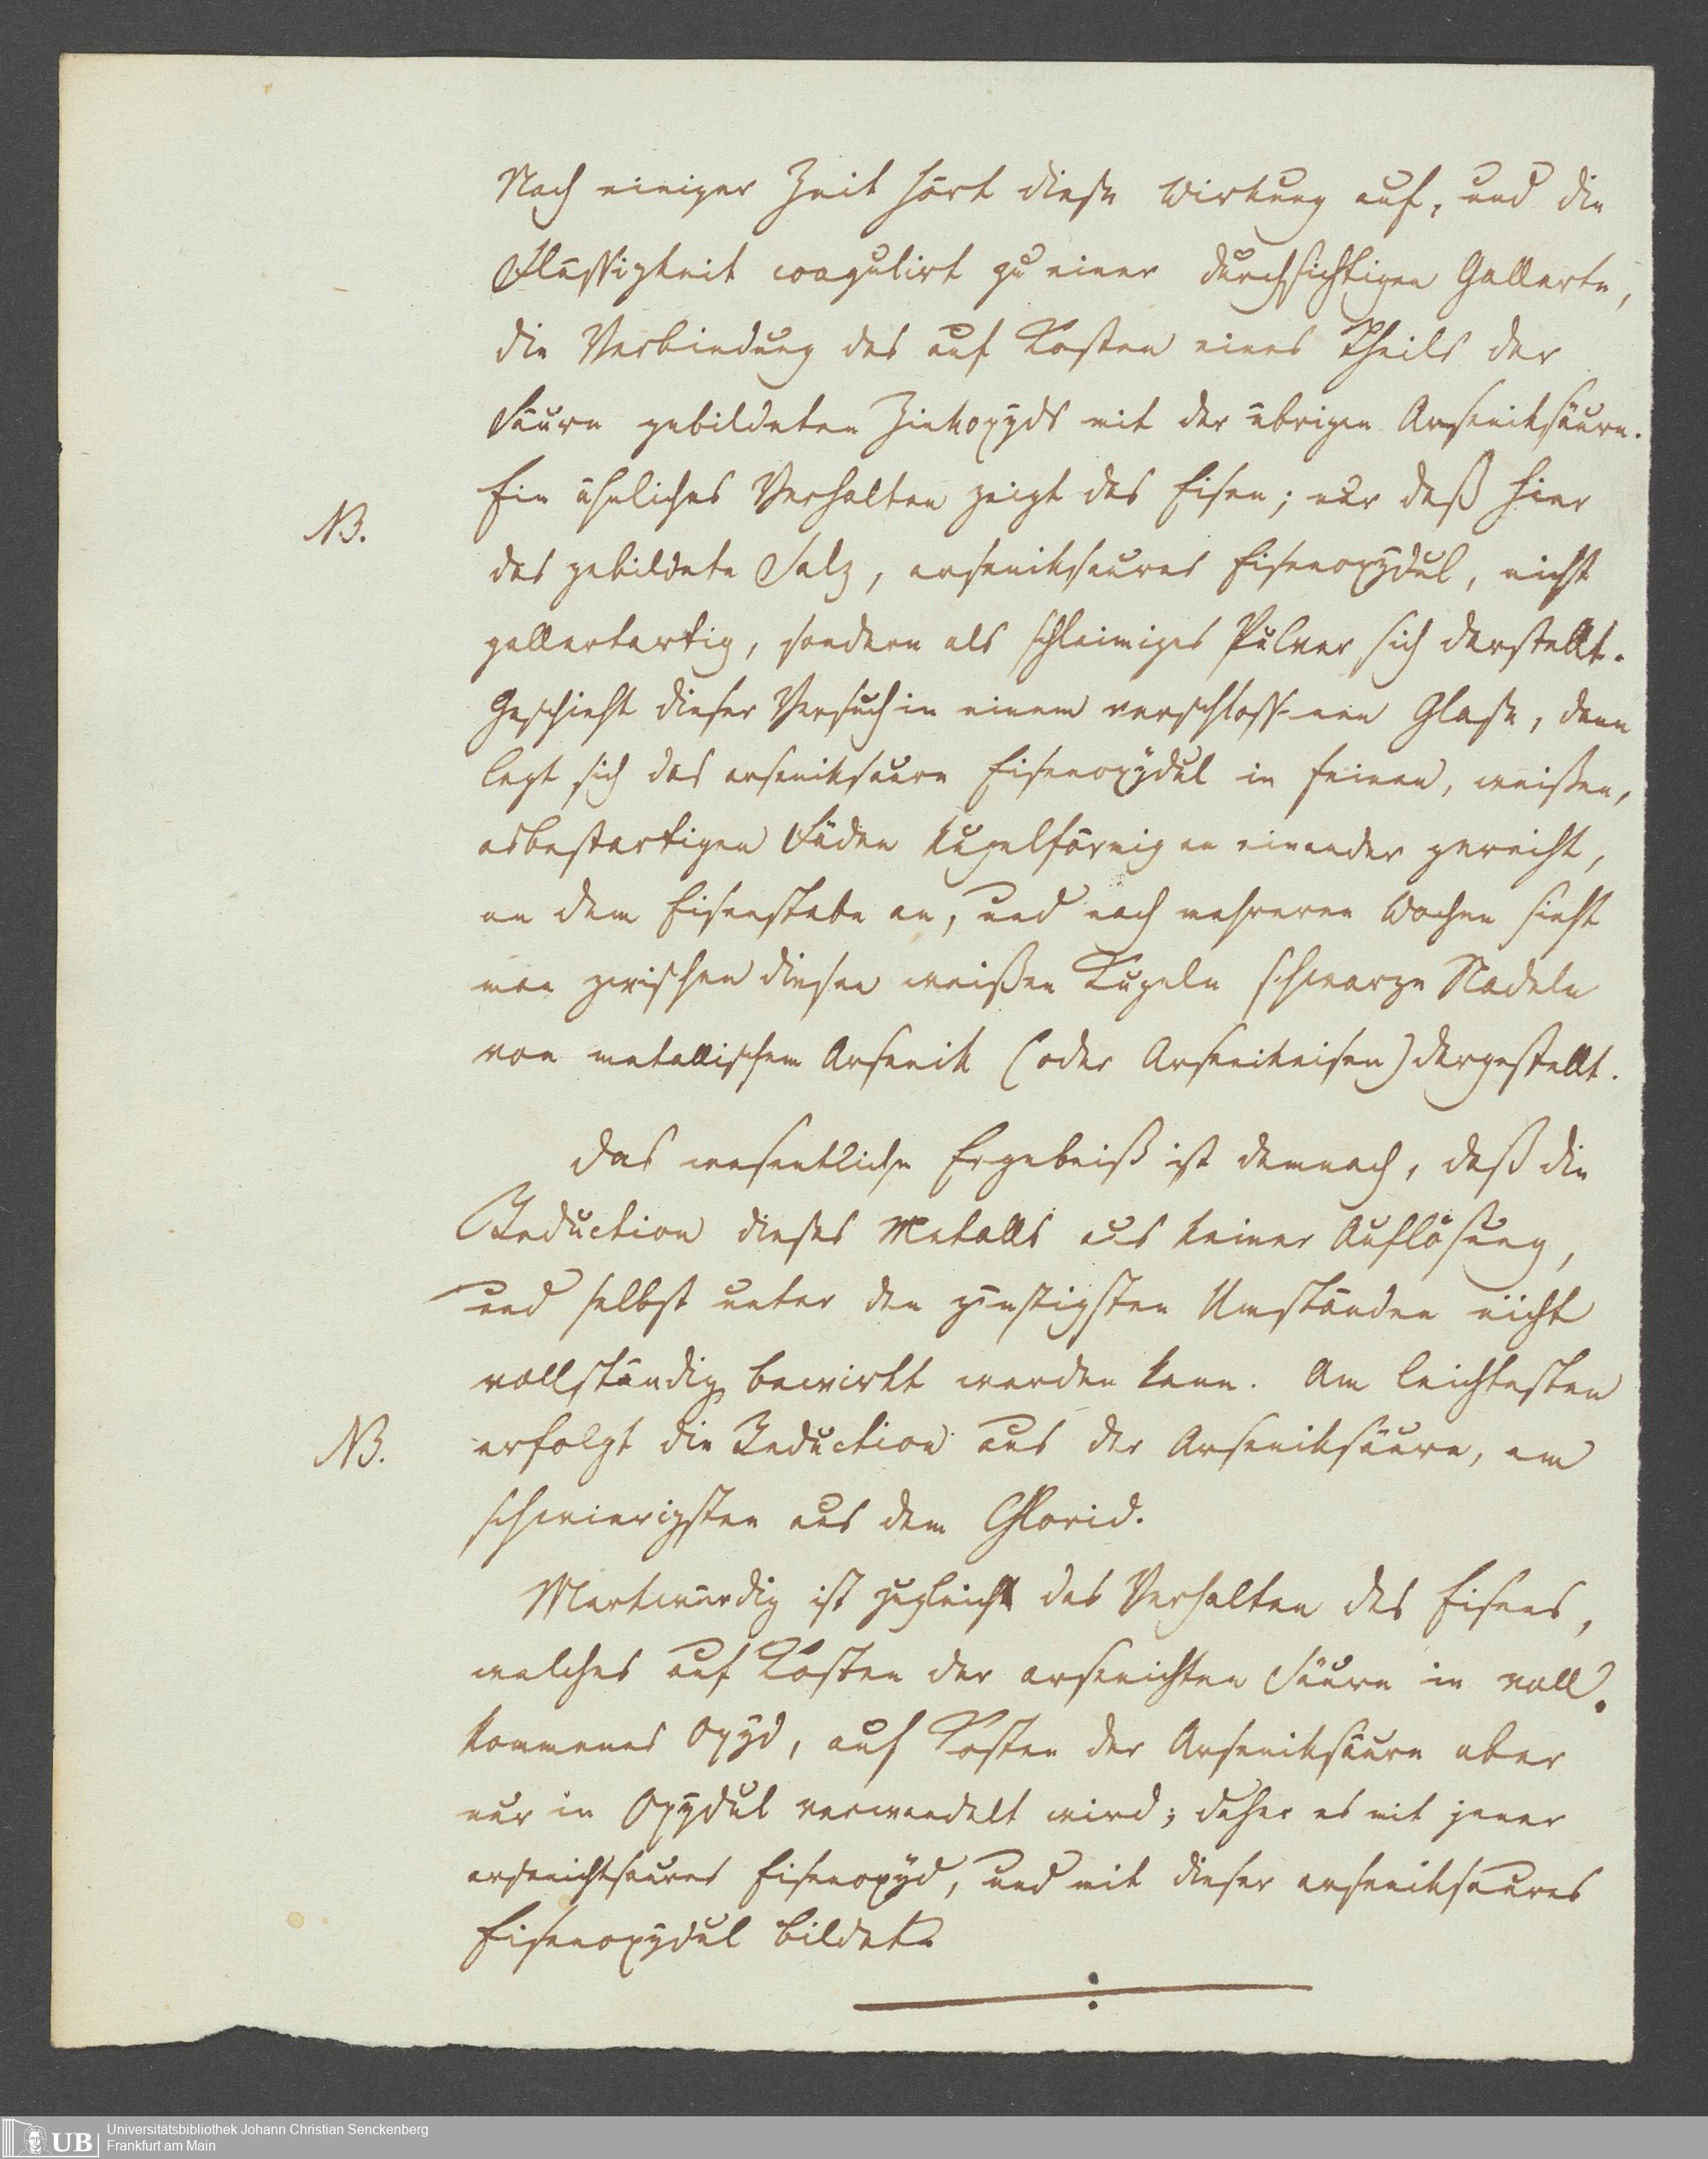 Nach einiger Zeit hört diese Wirkung auf, und die
Flüssigkeit coagulirt zu einer durchsichtigen Gallerte,
die Verbindung des auf Kosten eines Theils der
Säure gebildeten Zinkoxÿds mit der übrigen Arseniksäure.
Ein ähnliches Verhalten zeigt das Eisen; nur daß hier
NB.
das gebildete Salz, arseniksaures Eisenoxÿdul, nicht
gallertartig, sondern als schleimiges Pulver sich darstellt.
Geschieht dieser Versuch in einem verschlossenen Glase, dann
legt sich das arseniksaure Eisenoxÿdul in feinen, weißen,
asbestartigen Fäden kugelförmig an einander gereiht,
an dem Eisenstabe an, und nach mehreren Wochen sieht
man zwischen diesen weißen Kugeln schwarze Nadeln
von metallischem Arsenik (oder Arsenikeisen) dargestellt.
Das wesentliche Ergebniß ist demnach, daß die
Reduction dieses Metalls aus keiner Auflösung,
und selbst unter den günstigsten Umständen nicht
vollständig bewirkt werden kann. Am leichtesten
NB.
erfolgt die Reduction aus der Arseniksäure, am
schwierigsten aus dem Chlorid.
Merkwürdig ist zugleich das Verhalten des Eisens,
welches auf Kosten der arsenichten Säure in voll
kommenes Oxÿd, auf Kosten der Arseniksäure aber
nur in Oxÿdul verwandelt wird; daher es mit jener
arsenichtsaures Eisenoxÿd, und mit dieser arseniksaures
Eisenoxÿdul bildet.
UB
Universitätsbibliothek Johann Christian Senckenberg
Frankfurt am Main